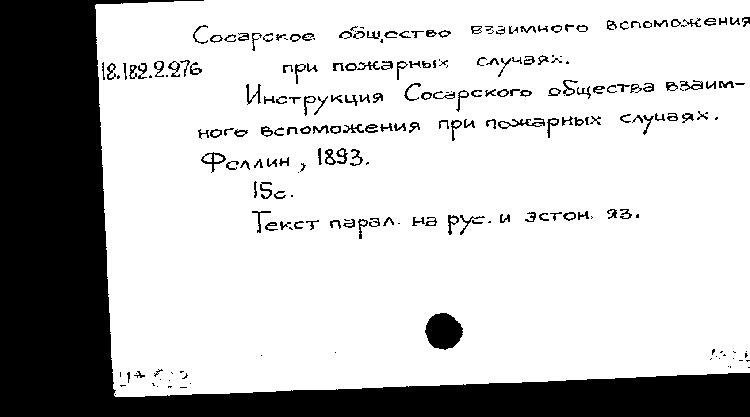 Сосарское общество взаимного вспоможения
18.182.2.276 при пожарных случаях.
Инструкция Сосарского общества взаим-
ного вспоможения при пожарных случаях.
Феллин, 1893.
15с.
Текст парал. на рус. и эстон. яз.